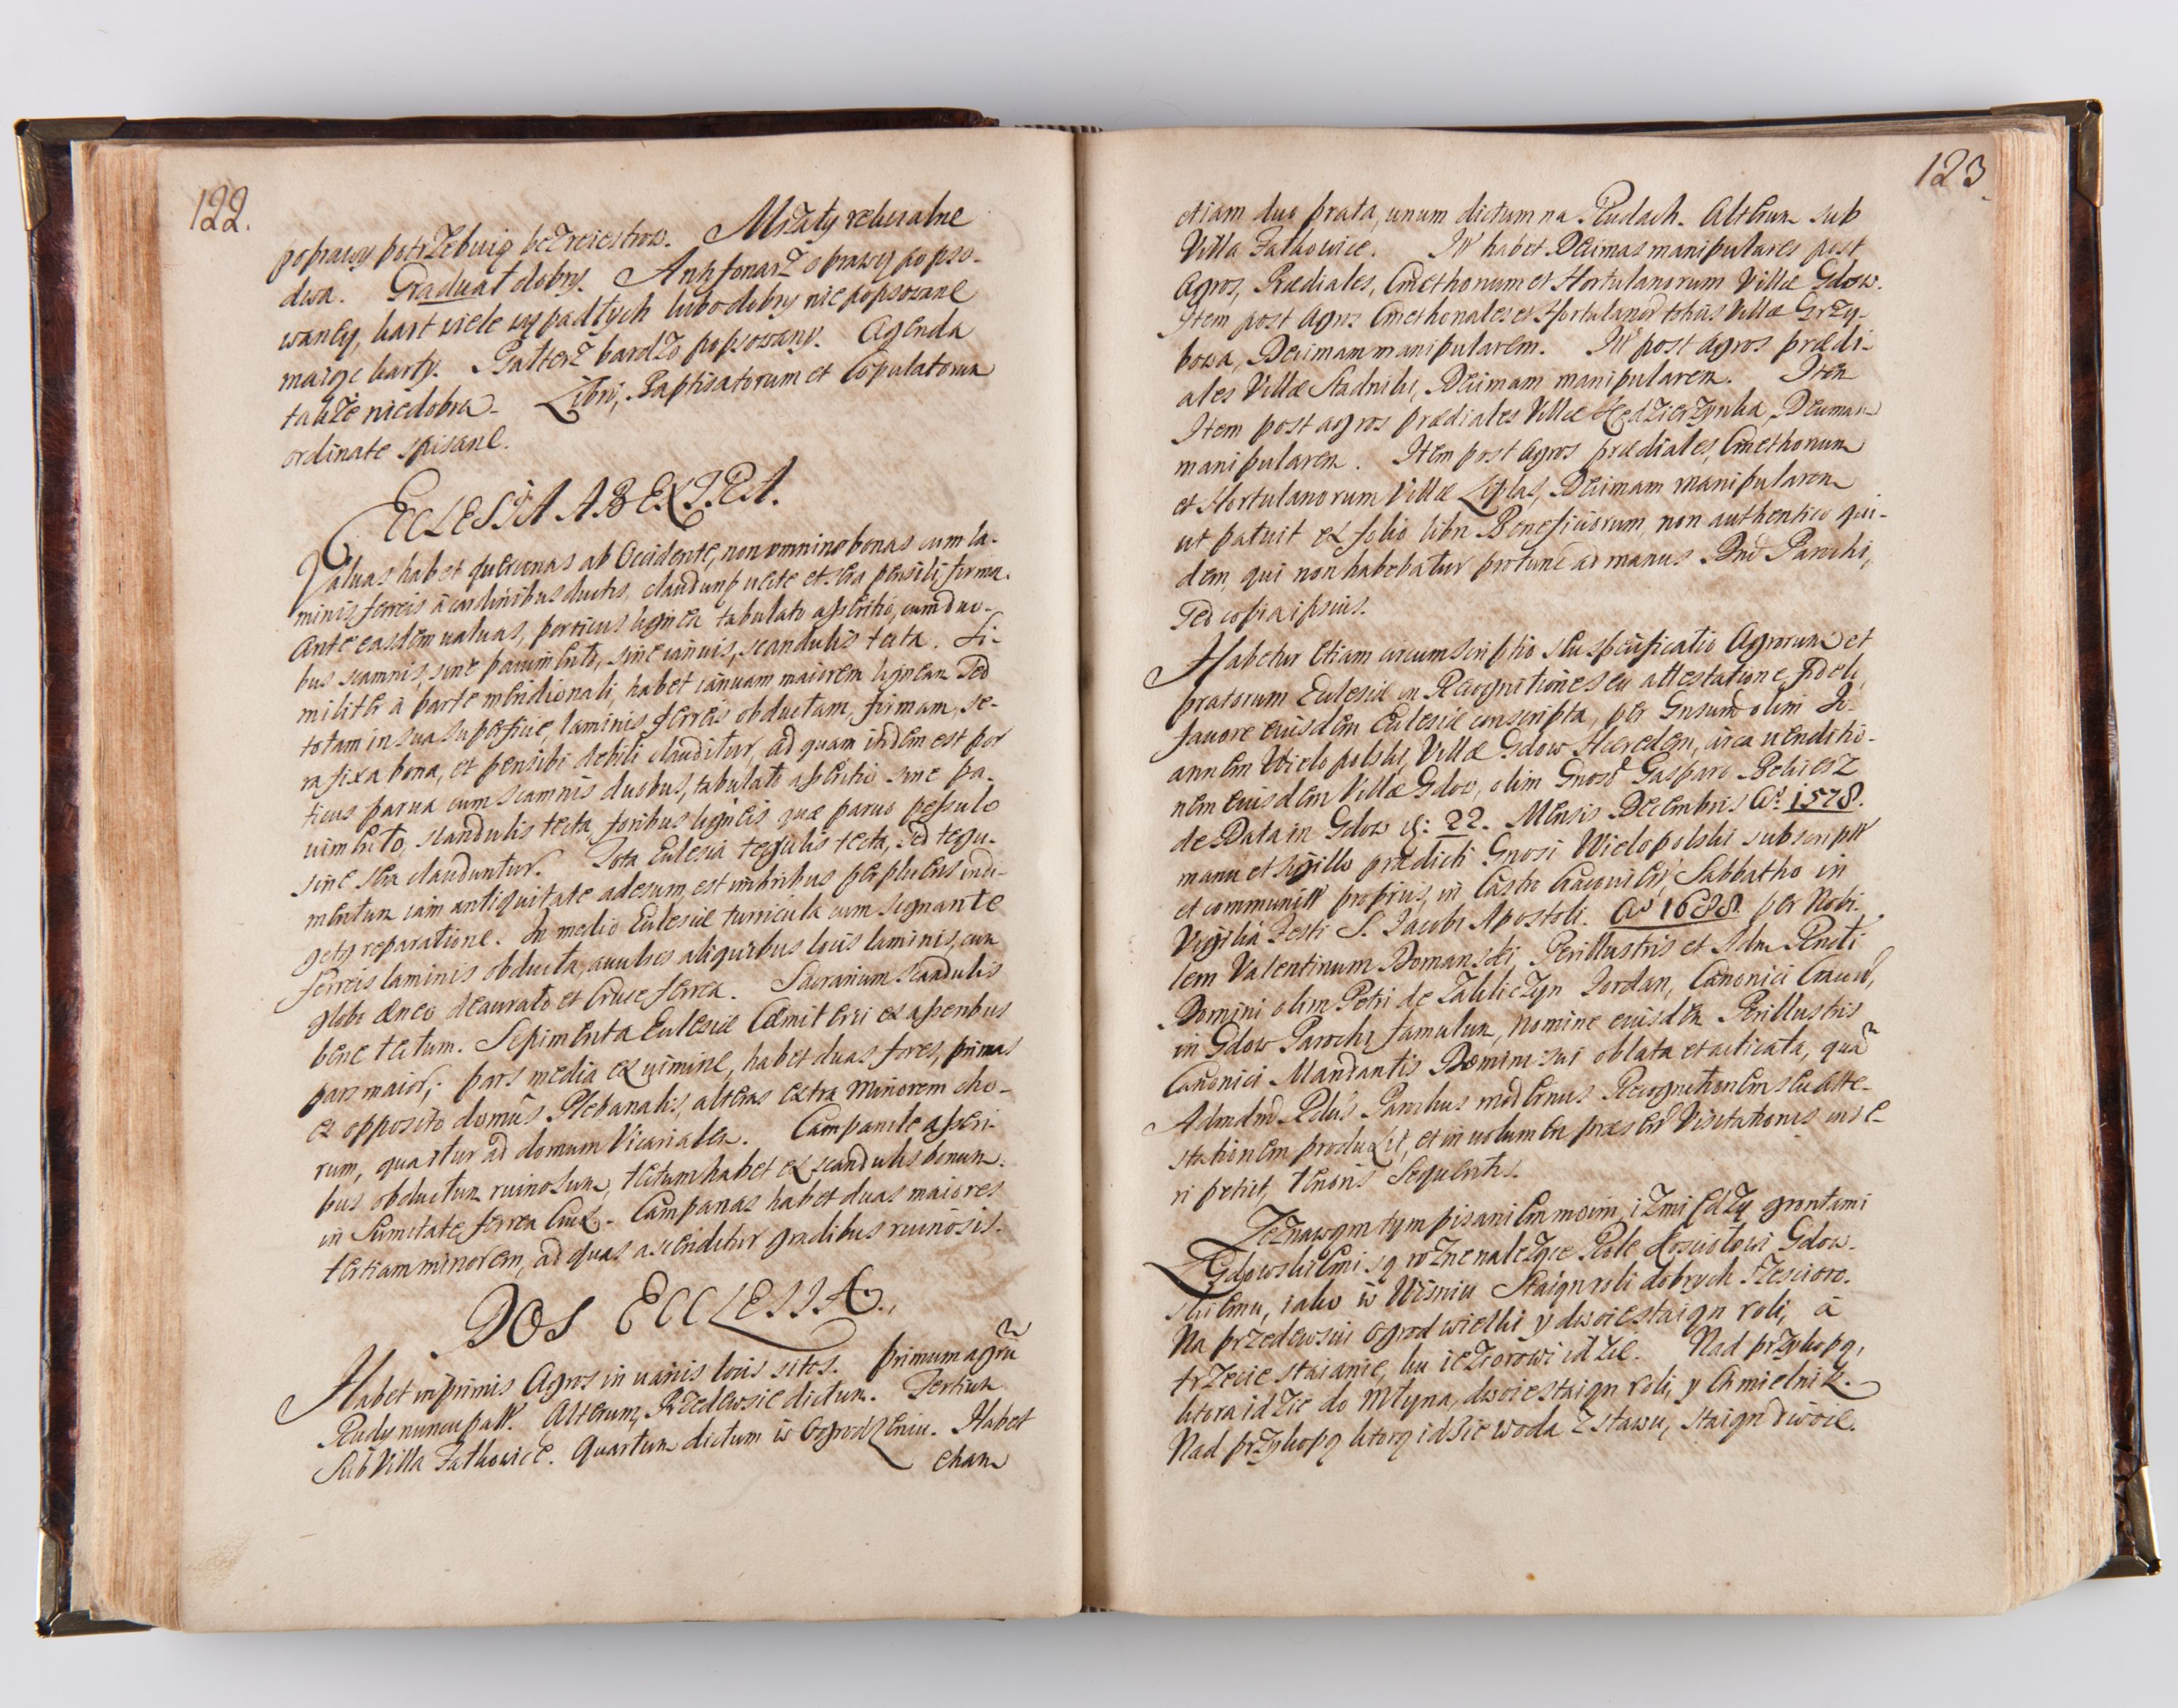 122.
poprawy potrzebuią bez reiestrow. Mszały requialne
dwa. Graduał dobry. Antyfonarz oprawy popso-
waney, kart wiele wypadłych lubo dobry nie popsowane
maiąc karty. Psałterz bardzo popsowany. Agenda
także niedobra. Libri, Baptisatorum et Copulatorum
ordinate spisane.
ECCLESIA AB EXTRA.
Valuas habet quercinas ab Occidente, non omnino bonas cum la-
minis ferreis à cardinibus ductis, clauduntur vecte et sera pensili firma.
Ante easdem ualuas, porticus lignea tabulato asseritio, cum duo-
bus scamnis, sine pauimento, sine ianuis, scandulis tecta. Si-
militer à parte meridionali, habet ianuam maiorem ligneam sed
totam in sua superficie, laminis ferreis obductam, firmam, se-
ra fixa bona, et pensili debili clauditur, ad quam itidem est por
ticus parua cum scamnis duobus, tabulato asseritio sine pa-
uimento, scandulis tecta, foribus ligneis quæ paruo pessulo
sine sera clauduntur. Tota Ecclesia tegulis tecta, sed tegu-
mentum iam antiquitate adesum, est imbribus perpluens indi-
getq reparatione. In medio Ecclesiæ turricula cum signante
ferreis laminis obducta, auulsis aliquibus locis laminis, cum
globo æneo deaurato et Cruce ferrea. Sacrarium scandulis
bene tectum. Sepimenta Ecclesiæ Cæmiterii ex asseribus
pars maior, pars media ex uimine, habet duas fores, primas
ex opposito domûs Plebanalis, alteras extra minorem cho-
rum, quâ itur ad domum Vicarialem. Campanile asseri-
bus obductum ruinosum, tectum habet ex scandulis bonum.
in Sumitate ferrea Crux. Campanas habet duas maiores
tertiam minorem, ad quas ascenditur gradibus ruinosis.
DOS ECCLESIÆ.
Habet inprimis Agros in uariis locis sitos. primum agrū
Rudy nuncupatt. Alterum, Przedewsie dictum. Tertium
Sub Villa Fałkowice. Quartum dictum w Ogrodzeniu. Habet
etiam
123
etiam duo prata, unum dictum na Rudach. Alterum sub
Villa Fałkowice. Itt habet Decimas manipulares post
Agros, Prædiales, Cmethonum et Hortulanorum Villæ Gdow.
Item post Agros Cmethonales et Hortulanor totius Villæ Grzy-
bowa, Decimam manipularem. Itt post agros prædi-
ales Villæ Stadniki, Decimam manipularem. Item
Item post agros prædiales Villæ Hędzierzynka, Decimam
manipularem. Item post Agros prædiales, Cmethonum
et Hortulanorum Villæ Liplas, Decimam manipularem
ut patuit ex folio libri Beneficiorum, non authentico qui-
dem, qui non habebatur protunc ad manus Dni Parochi,
sed copia ipsius.
Habetur etiam circumscriptio seu specificatio Agrorum et
pratorum Ecclesiæ in Recognitione seu attestatione, fideli,
fauore eiusdem Ecclesiæ conscripta, per Gnsum olim Jo-
annem Wielopolski, Villæ Gdow Hæredem, circa uenditio-
nem eiusdem Villæ Gdow, olim Gnoso Gasparo Bekierz
de Data in Gdow d: 22. Mensis Decembris Ao. 1578.
manu et sigillo prædicti Gnosi Wielopolski subscriptt
et communitt propriis, in Castro Cracouien, Sabbatho in
Vigilia Festi S. Jacobi Apostoli. Ao 1688 per Nobi-
lem Valentinum Domanski, Perillustris et Adm Rendi
Domini olim Petri de Zakliczyn Jordan, Canonici Cracou,
in Gdow Parochi famulum, nomine eiusdem Perillustris
Canonici Mandantis Domini sui oblata et acticata, quā
Admdnd Rdus Parochus modernus Recognitionem seu Atte-
stationem produxit, et in uolumen præsent Visitationis inse-
ri petiit, tenoris Sequentis.
Zeznawąm tym pisaniem moim, iż miedzy grontami
Gdowskiemi są rożne należące Role Kosciołowi Gdow-
skiemu, iako w Wisniu Staiąn roli dobrych szescioro.
Na przedewsiu ogrod wielki y dwoie staiąn roli, á
trzecie staianie, ku ieziorowi idzie. Nad przykopą,
ktora idzie do Młyna, dwoie staiąn roli, y Chmielnik.
Nad przykopą ktorą idzie woda z stawu, staiąn dwoie.